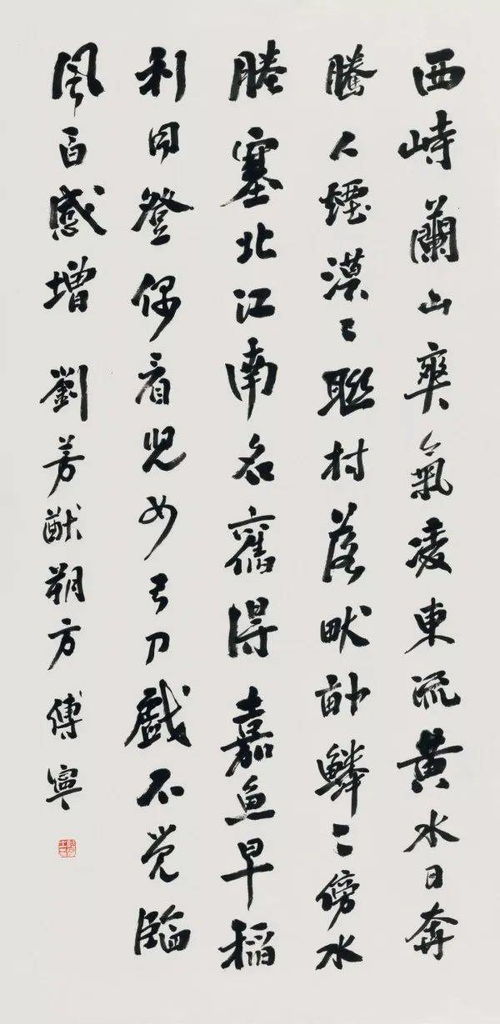 西峙蘭山爽氣凌東流黃水日奔
騰人煙漠〻聯村落畎畝鱗〻傍水
塍塞北江南名舊得嘉魚早稻
利同登偶看兒女弓刀戲不覺臨
風百感增 劉芳猷朔方 傅寧